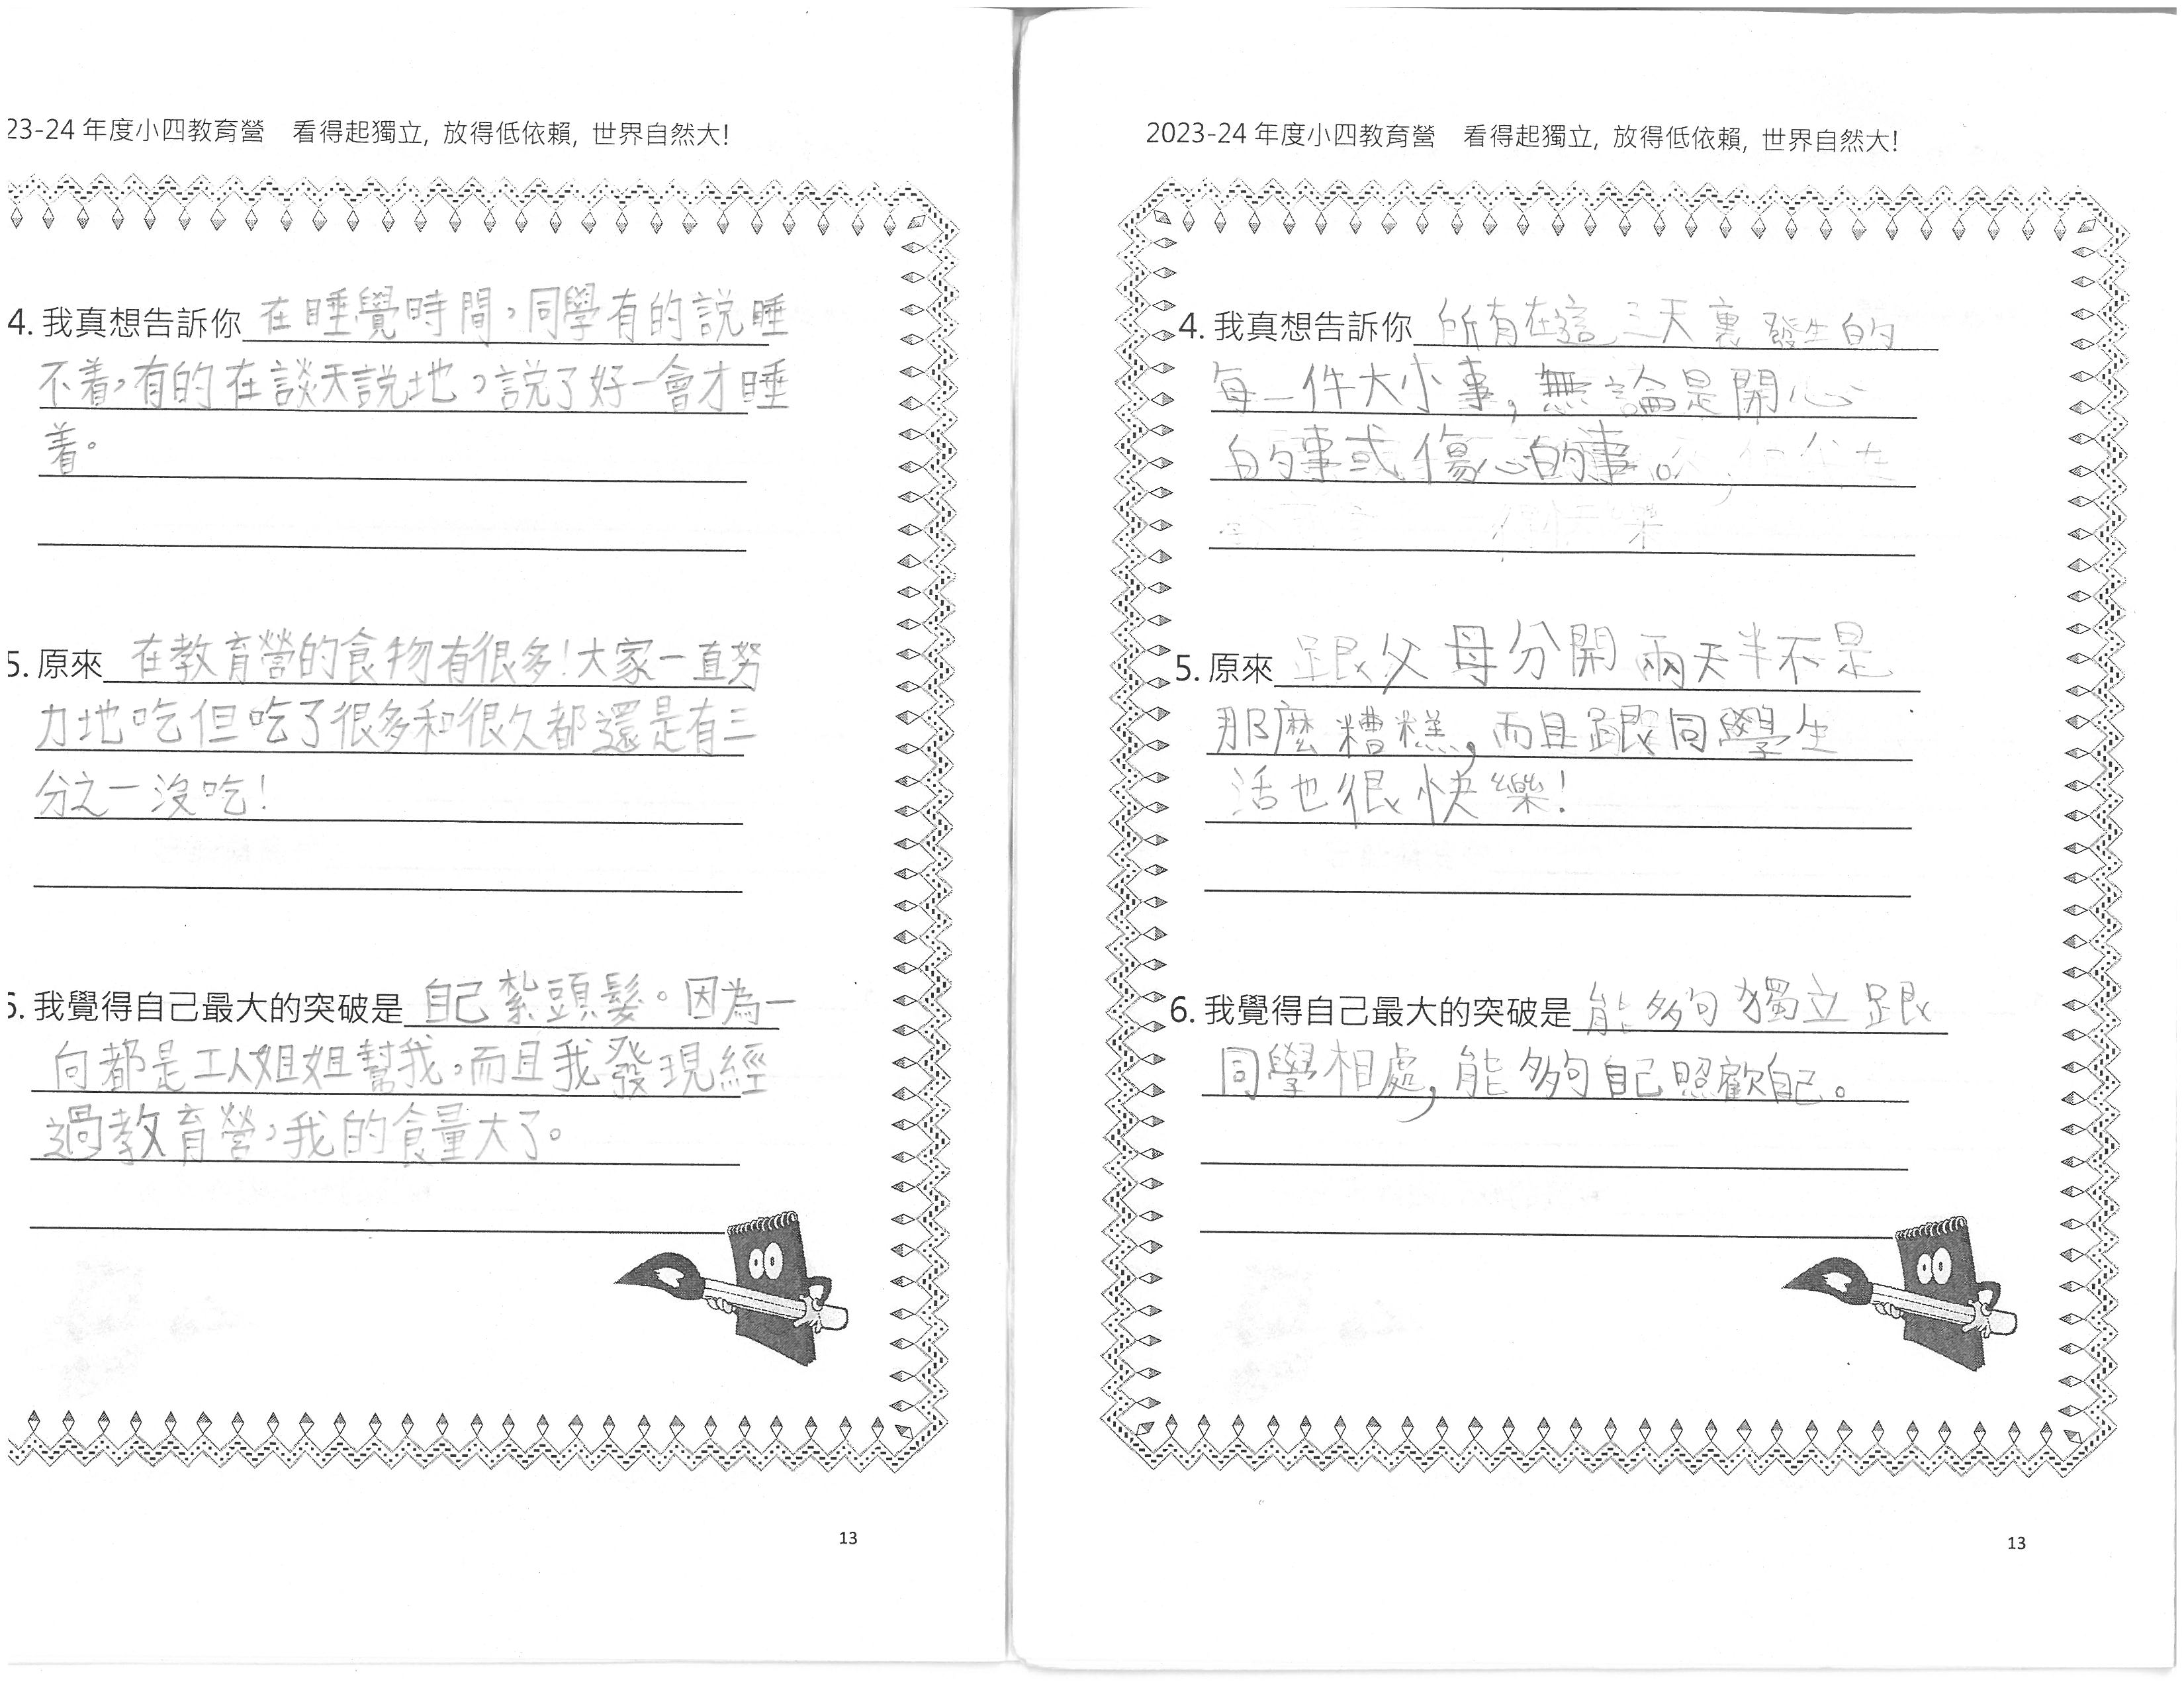 23-24 年度小四教育營 看得起獨立, 放得低依賴, 世界自然大!
4. 我真想告訴你 在睡覺時間，同學有的說睡
不着，有的在談天說地，說了好一會才睡
着。
5. 原來 在教育營的食物有很多！大家一直努
力地吃但吃了很多和很久都還是有三
分之一沒吃！
6. 我覺得自己最大的突破是 自己紮頭髮。因為一
向都是工人姐姐幫我，而且我發現經
過教育營，我的食量大了。
13
2023-24 年度小四教育營 看得起獨立, 放得低依賴, 世界自然大!
4. 我真想告訴你 所有在這三天裏發生的
每一件大小事，無論是開心
的事或傷心的事。
5. 原來 跟父母分開兩天半不是
那麼糟糕，而且跟同學生
活也很快樂！
6. 我覺得自己最大的突破是 能夠獨立跟
同學相處，能夠自己照顧自己。
13